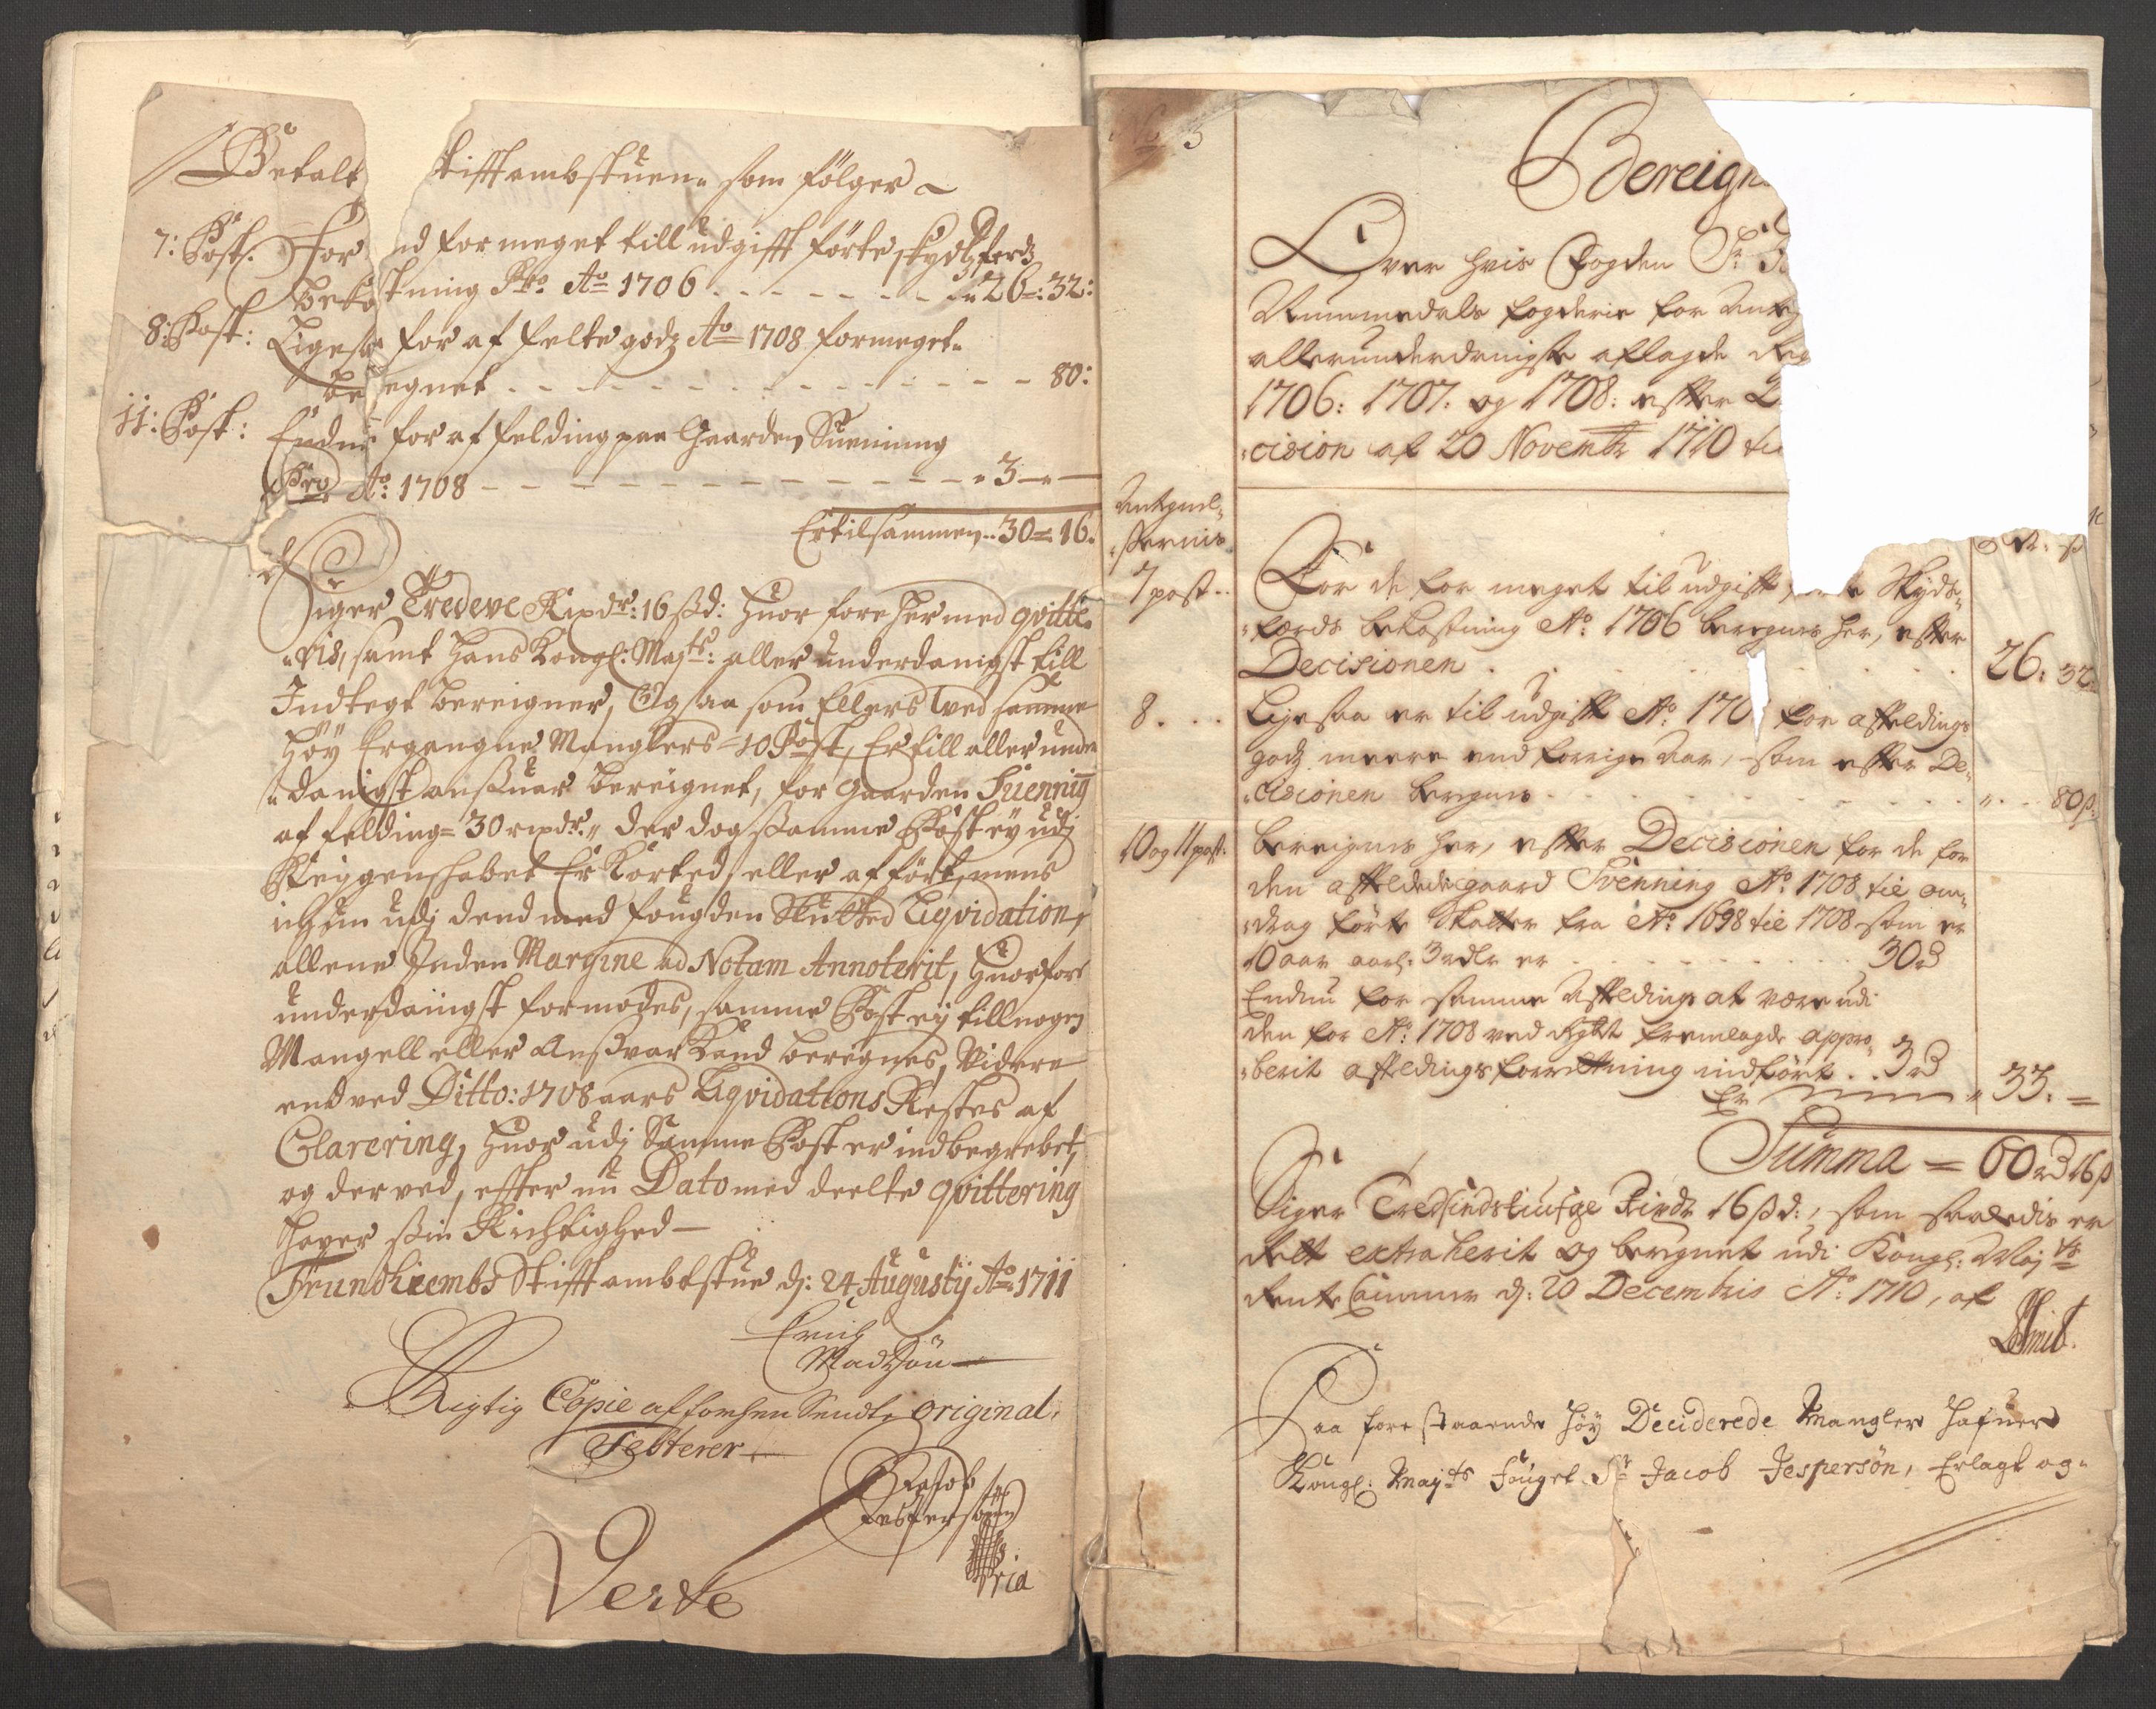 Betalt stifftambstuen som følger
7: Post. For nd for meget till udgifft førte skydtzferdz
bekostning Pro Ao 1706 - - - 26: 32:
8: Post: Ligesaa for af felte godz Ao 1708 formeget
beregnet - - - 80:
11: Post: Endnu for af felding paa Gaarden Suenning
Pro Ao: 1708 - - - 3 -
Er tilsammen .. 30 = 16.
Siger Tredeve Rixdr: 16 ßd: Huor fore her med qvitte-
ris, samt Hans Kongl: Majts: aller underdanigst till
Indtegt bereigner, Og saa som Ellers ved samme
Høy Ergangne Manglers = 10 Post, Er till aller under
danigst ansuar bereignet, for Gaarden Suennig
af felding = 30 rixdr. der dog samme Post ey udj
Reiggenschabet Er Korted eller afført, mens
ichun udj dend med fougden Slutted Liqvidation,
allene Inden Margine ad Notam Annoterit, Huorfore
underdaingst formodes, samme Post ey till nogen
Mangell eller Ansvar Kand beregnes, Videre
end ved Ditto: 1708 aars Liqvidations Restes af
Clarering, Huor udj Samme Post er indbegrebet,
og der ved, effter nu Dato med deelte qvittering
hafver sin Richtighed -
Trundhiembs Stifftambtstue d: 24 Augustij Ao 1711
Erich
Madzøn
Rigtig Copie af forhen Sendte original,
Testerer
Jacob
Jespersøn
Mppria
Verte
No 3
Bereign
Over hvis Fogden Sr. J
Nummedals fogderie for Anteg
allerunderdanigste aflagde Reg
1706: 1707. og 1708: efter
cision af 20 Novembr 1710 til
Antegnel-
sernis
7 post .. For de for meget til udgift førte Skyds-
færds bekostning Ao: 1706 beregnes her, efter
Decisionen . . . 26: 32
8 . . . Ligesaa er til udgift Ao: 170 for affeldings
godz meere end forrige Aar, som efter De-
cisionen beregnes . . . 80 ß:
10 og 11 post. bereignes her, efter Decisionen for de for
den affeldede gaard Svenning Ao: 1708 til aur-
drag førte Skatter fra Ao: 1698 til 1708 som er
10 aar aarl: 3 rdlr er . . . 30 rd
Endnu for samme Affelding at være udi
den for Ao: 1708 ved Rgbt fremlagde appro-
berit affeldings forretning indført . . 3 rd
Er 33. =
Summa = 60 rd 16 ß
Siger Tredsindstiufge Rixdr 16 ßd:, som saaledis er
rett extraherit og beregnet udi Kongl: Mayts
Rente Cammer d: 20 Decembris Ao: 1710, af
Smit.
Paa fore staaende høy Deciderede Mangler Hafuer
Kongl: Mayts Fouget Sr Jacob Jespersøn, Erlagt og